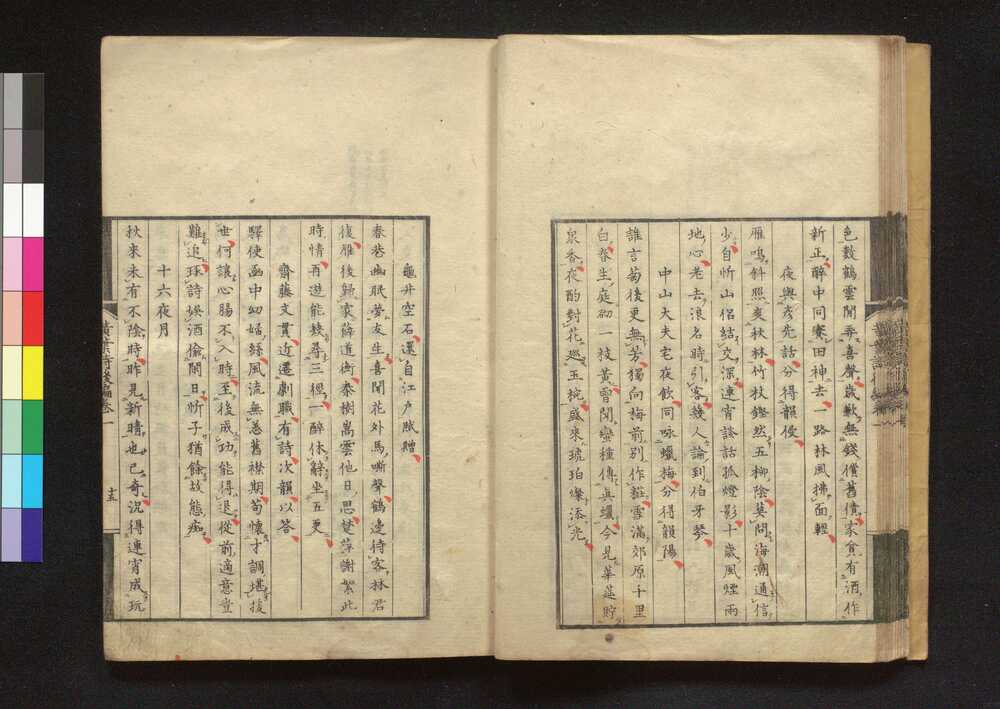 色數鶴雲閒弄喜聲歲歉無錢償舊債家貧有酒作
新正醉中同賽田神去一路林風拂面輕
夜與彥先話分得韻侵
雁鳴斜照爽秋林竹杖鏗然五柳陰莫問海潮通信
少自忻山侶結交深連宵談話孤燈影十歲風煙兩
地心老去浪名時引客幾人論到伯牙琴
中山大夫宅夜飲同咏蠟梅分得韻陽
誰言菊後更無芳獨向梅前別作粧雪滿郊原千里
白春生庭砌一枝黃曾聞蠻種傳真蠟今見華莚貯
泉香夜酌對花巡玉椀盛來琥珀爍添光
龜井空石還自江戶賦贈
春巷幽眠勞友生喜聞花外馬嘶聲鶴邊待客林君
復雁後歸家薛道衡泰樹嵩雲他日思楚萍謝絮此
時情再遊能幾尋三徑一醉休辭坐五更
齋藤文貫近遷劇職有詩次韻以答
驛使函中幼婦絲風流無恙舊襟期苟懷才調堪拔
世何讓心腸不入時至後成功能得退從前適意豈
難追琢詩娛酒偷閒日忻子猶餘故態癡
十六夜月
秋來未有不陰時昨見新晴也已奇況得連宵成玩
黃葉夕陽村舍詩後編卷一
十五